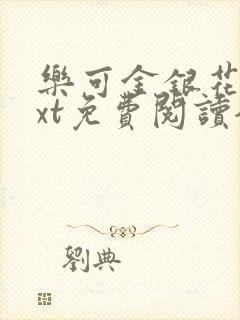 樂可金銀花
xt免費閱讀
劉典